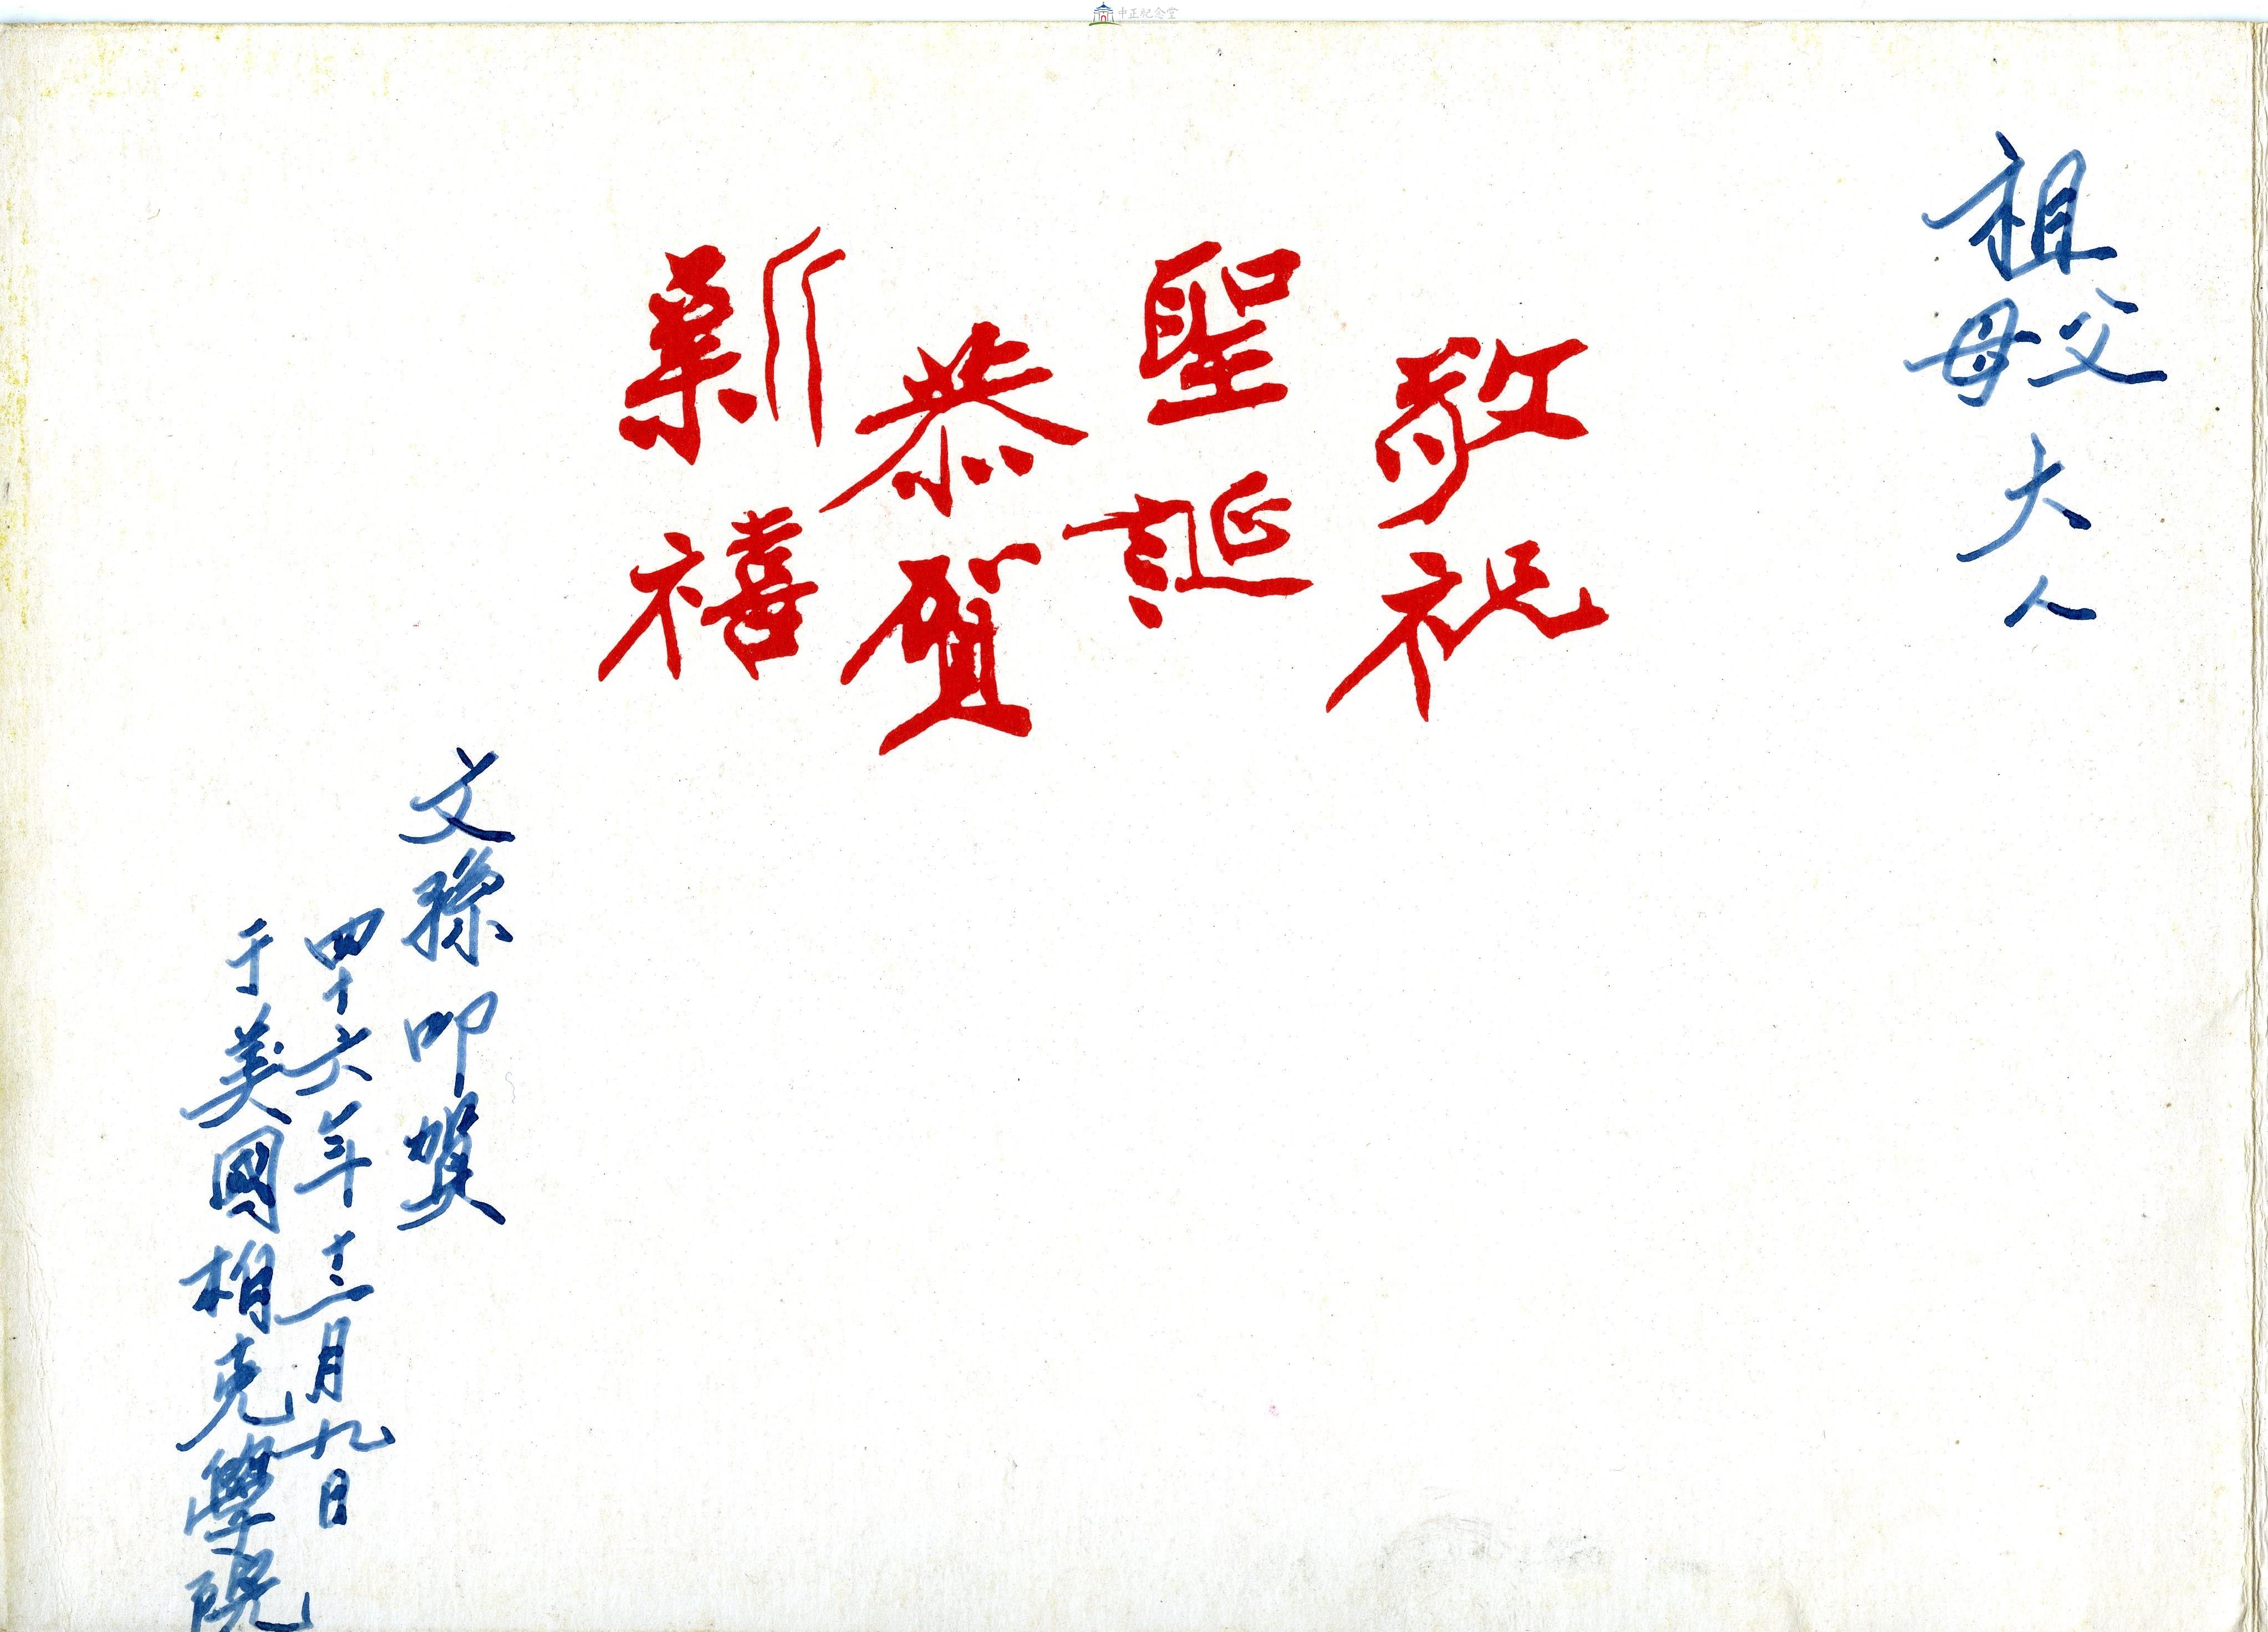 中正紀念堂
祖父母大人
敬祝
聖誕
恭賀
新禧
文孫叩賀
四十六年十二月九日
于美國柏克學院